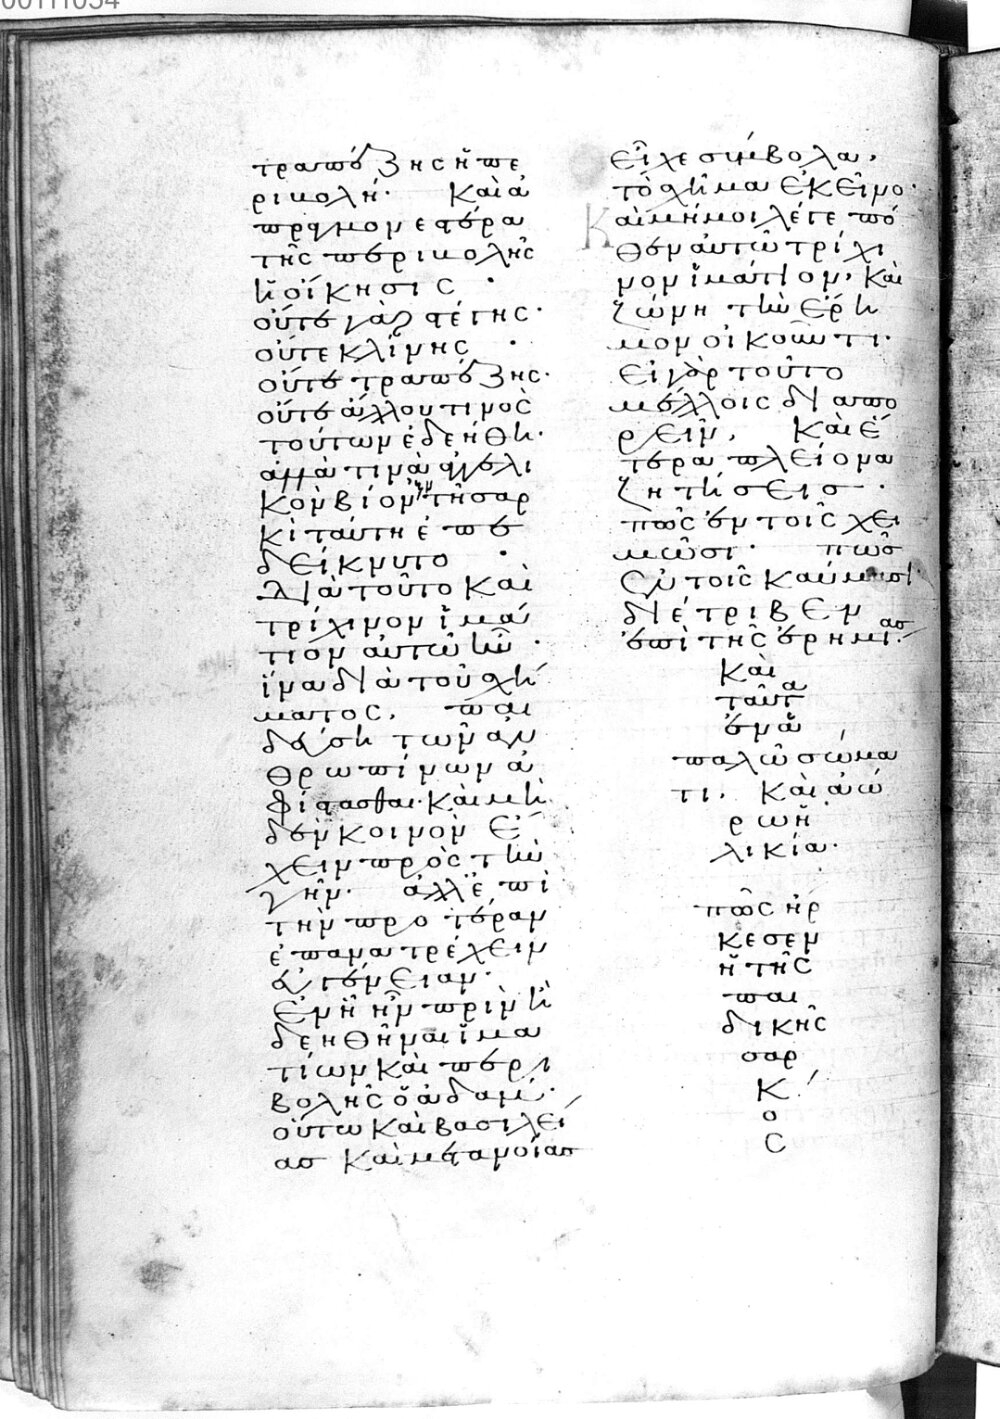 00111054
τραπέζης ἢ πε
ριβολή· Καὶ ἀ
πραγμονεστέρα
τῆς περιβολῆς
ἡ οἴκησις·
οὔτε γὰρ στέγης·
οὔτε κλίνης·
οὔτε τραπέζης·
οὔτε ἄλλου τινὸς
τούτων ἐδεήθη·
ἀλλά τινα ἀγγελι
κὸν βίον ἐν τῆ σαρ
κὶ ταύτη ἐπε
δείκνυτο·
Διὰ τοῦτο καὶ
τρίχινον ἱμά
τιον αὐτῶ ἦν·
ἵνα διὰ τοῦ σχή
ματος, παι
δεύση τῶν ἀν
θρωπίνων ἀ
φίστασθαι· καὶ μη
δὲν κοινὸν ἔ
χειν πρὸς τὴν
γῆν· ἀλλ' ἐπὶ
τὴν προτέραν
ἐπανατρέχειν
εὐγένειαν·
ἐν ἧ ἦν πρὶν ἢ
δεηθῆναι ἱμα
τίων καὶ περι
βολῆς ὁ ἀδάμ·
οὕτω καὶ βασιλεί
ας καὶ μετανοίας
εἶχε σύμβολα,
τὸ σχῆμα ἐκεῖνο·
Καὶ μή μοι λέγε πό
θεν αὐτῶ τρίχι
νον ἱμάτιον, καὶ
ζώνη τὴν ἔρη
μον οἰκοῦντι·
εἰ γὰρ τοῦτο
μέλλοις διαπο
ρεῖν, καὶ ἕ
τερα πλείονα
ζητήσεις·
πῶς ἐν τοῖς χει
μῶσι· πῶς
ἐν τοῖς καύμασι·
διέτριβεν
ἐπὶ τῆς ἐρημίας·
Καὶ
ταῦτα
ἐν ἁ
παλῶ σώμα
τι, καὶ ἀώ
ρω ἡ
λικία·
πῶς ἤρ
κεσεν
ἡ τῆς
παι
δικῆς
σαρ
κ
ὸ
ς